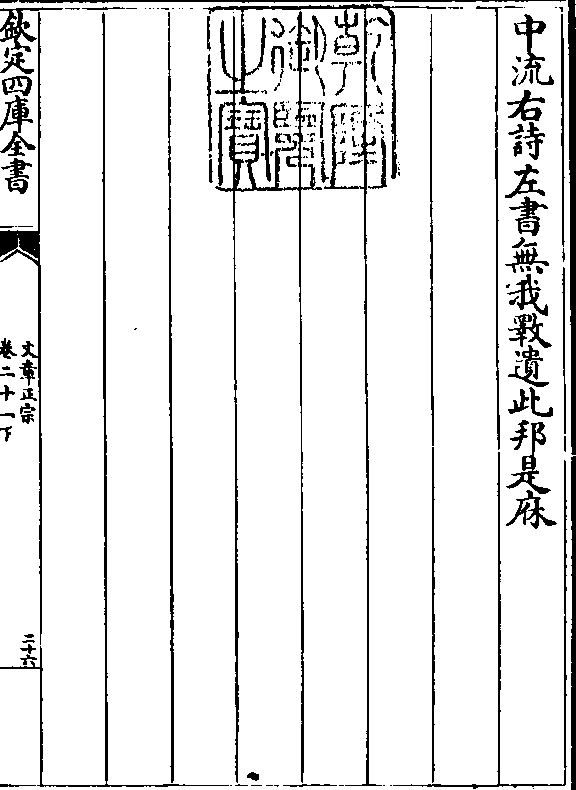 中流右詩左書無我斁遺此邦是庥
乾隆
御覽
之寶
欽定四庫全書
文章正宗
卷二十一下
二十六